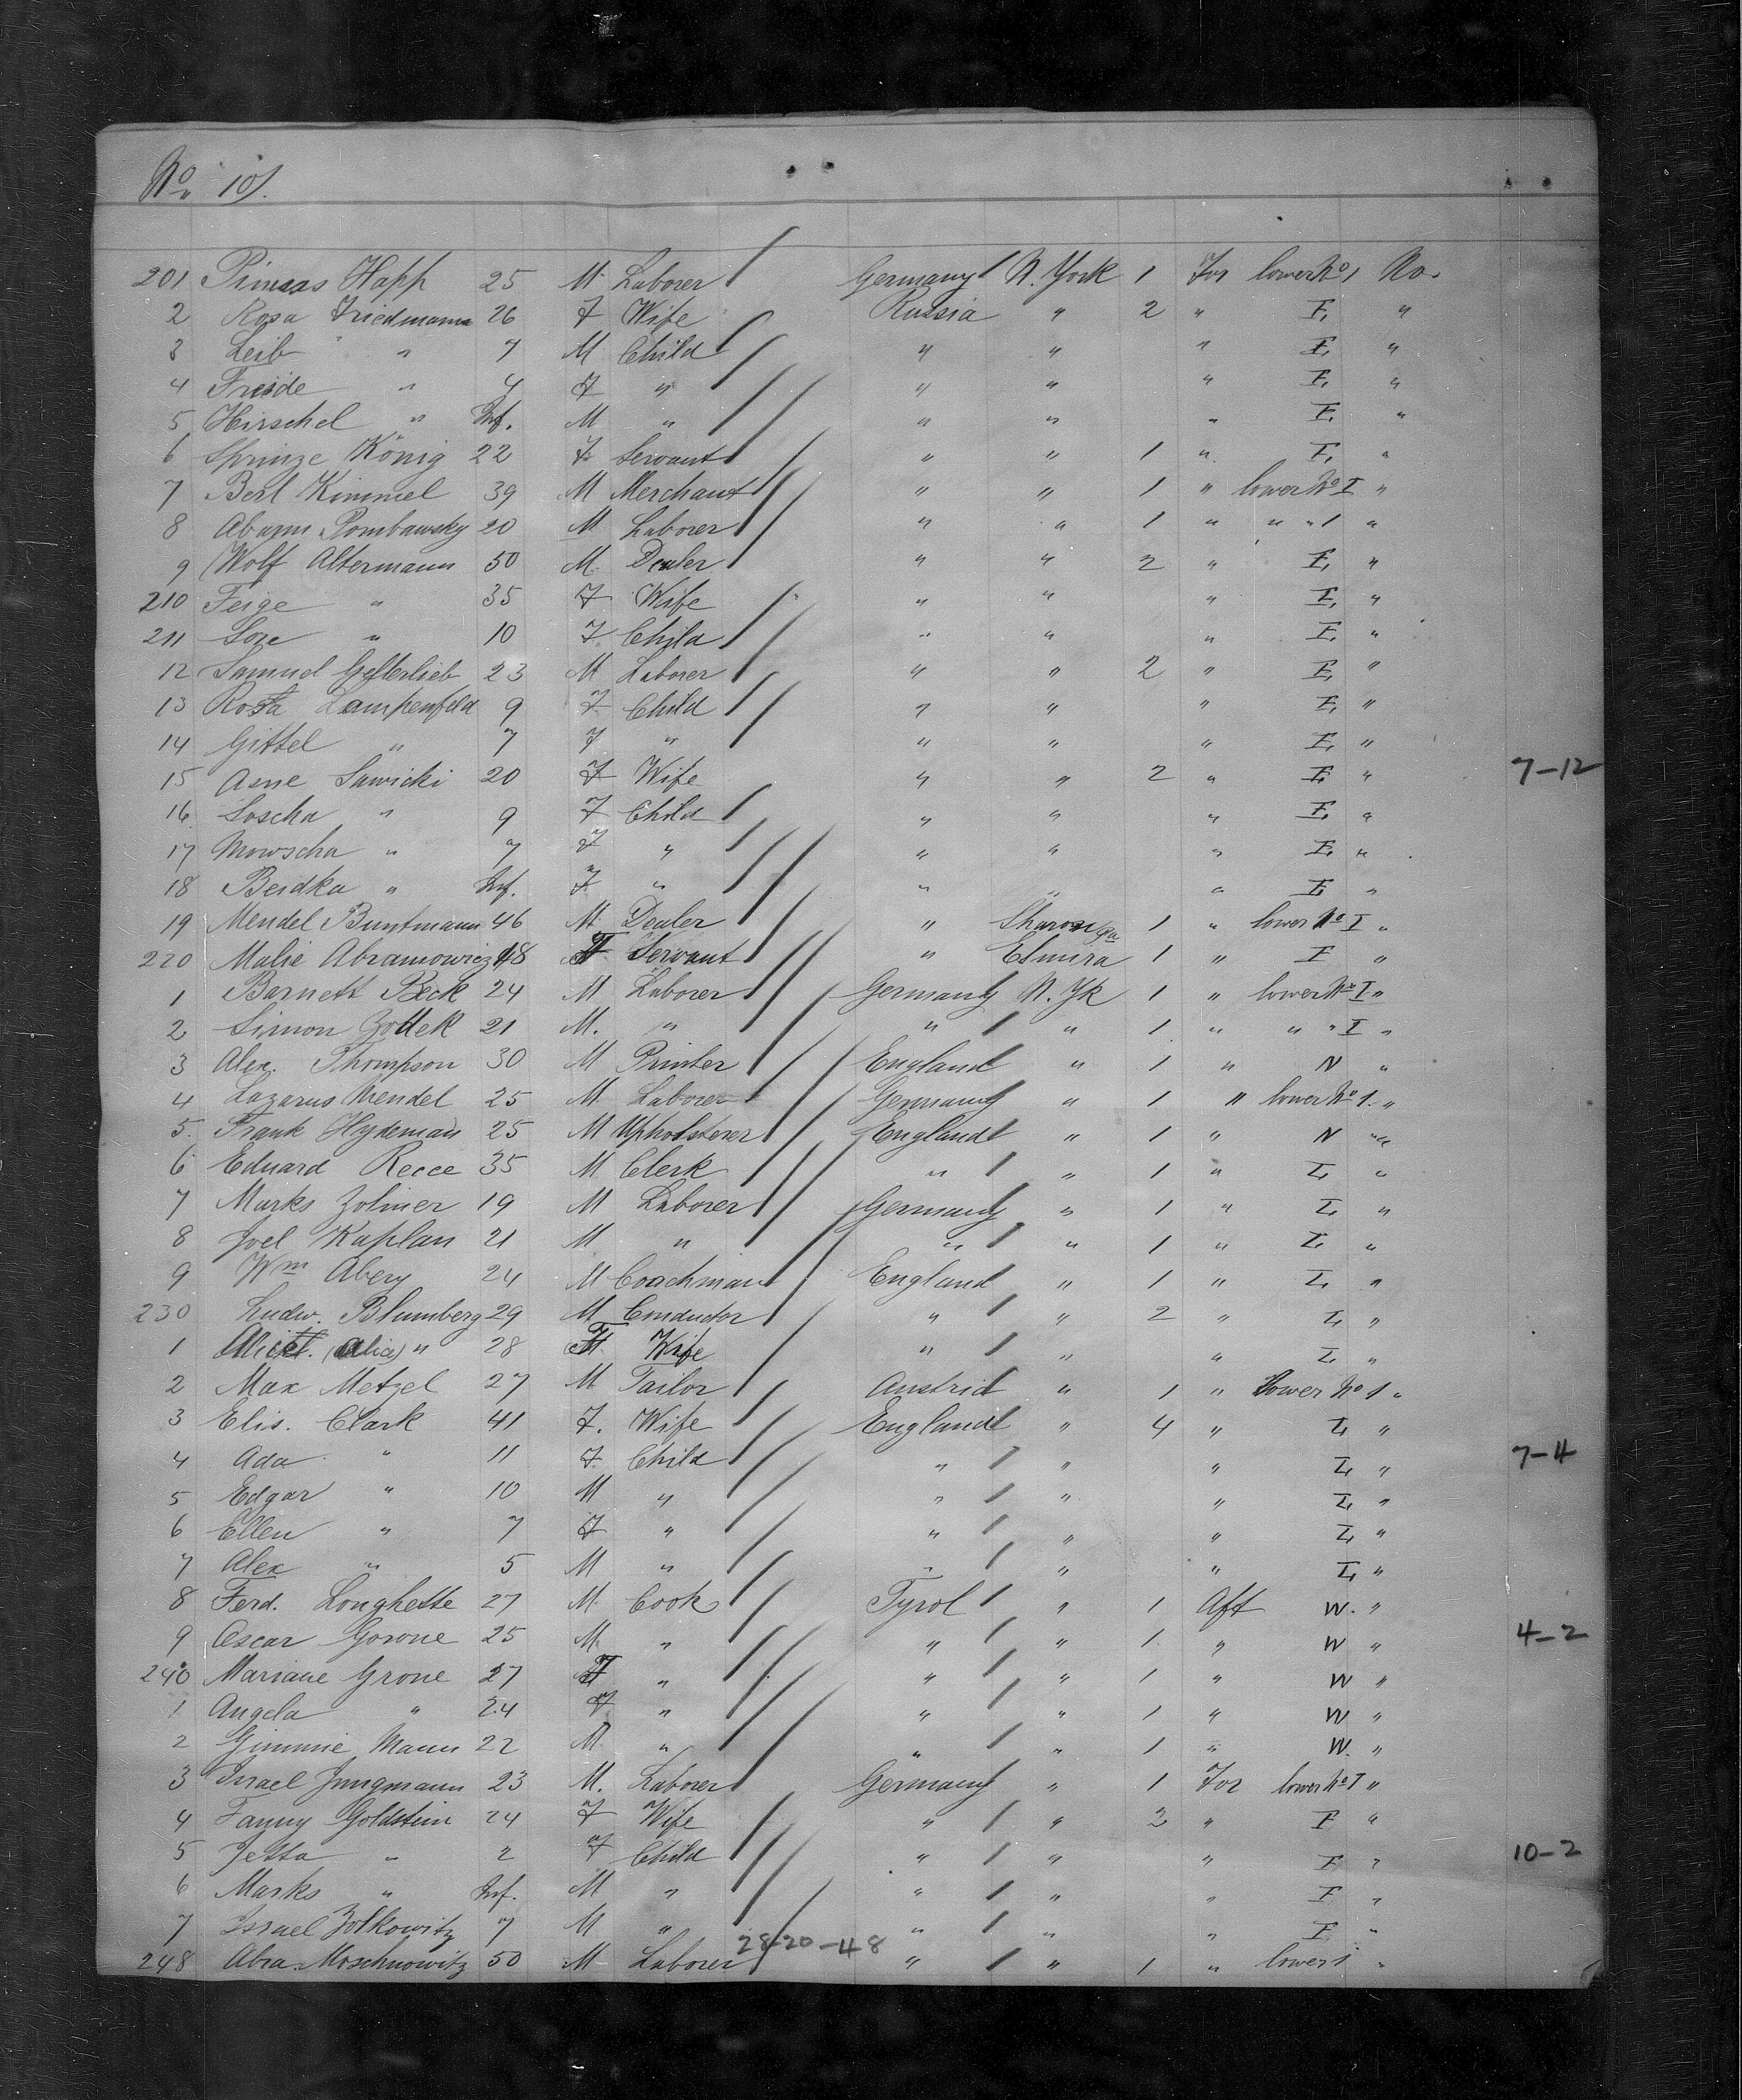 No 10).
201 Pinsas Happ 25 M. Laborer Germany N. York 1 For lower No 1 No.
2 Rosa Friedmann 26 F Wife Russia " 2 " E, "
3 Leib " 7 M Child " " " E, "
4 Freide " 4 F " " " " E, "
5 Hirschel " Inf. M " " " " E, "
6 Sprinze König 22 F Servant " " 1 " E, "
7 Berl Kimmel 39 M Merchant " " 1 " lower No I "
8 20 M Laborer " " 1 " " " 1 "
9 Wolf Altermann 50 M. Dealer " " 2 " E, "
210 Feige " 35 F Wife " " " E, "
211 Sore " 10 F. Child " " " E, "
12 Samuel 23 M Laborer " " 2 " E, "
13 Rosa Lampenfeld 9 F Child " " " E, "
14 Gittel " 7 F " " " " E, "
15 Asne Sawicki 20 F Wife " " 2 " E " 7-12
16 Soscha " 9 F Child " " " E "
17 Mowscha " 7 F " " " " E, "
18 Beidka " Inf. F. " " " " E "
19 Mendel Buntmann 46 M. Dealer " Sharon Pa 1 " lower No I "
220 Malie Abramowicz 18 F Servant " Elmira 1 " E "
1 Barnett Beck 24 M Laborer Germany N. Yk 1 " lower No I "
2 Simon Gottek 21 M. " " " 1 " " " I "
3 Alex. Thompson 30 M Printer England " 1 " N "
4 Lazarus Mendel 25 M Laborer Germany " 1 " lower No 1. "
5. Frank Heydeman 25 M Upholsterer England " 1 " N "
6 Eduard Reece 35 M Clerk " " 1 " L "
7 Marks Zolmer 19 M Laborer Germany " 1 " L "
8 Joel Kaplan 21 M " " " 1 " L "
9 Wm Abery 24 M Coachman England " 1 " L "
230 Ludw. Blumberg 29 M Conductor " " 2 " L "
1 (Alice) " 28 F Wife " " " L "
2 Max Metzel 27 M Tailor Austria " 1 " lower No 1 "
3 Elis. Clark 41 F. Wife England " 4 " L "
4 Ada " 11 F. Child " " " L " 7-4
5 Edgar " 10 M " " " " L "
6 Ellen " 7 F " " " " L "
7 Alex " 5 M " " " " L "
8 Ferd. Longhette 27 M. Cook Tyrol " 1 Aft W. "
9 Oscar Gorone 25 M. " " " 1. " W " 4-2
240 Mariane Grone 27 F " " " 1 " W "
1 Angela " 24 F " " " 1 " W "
2 Gimmie Mann 22 M " " " 1 " W. "
3 Israel Jungmann 23 M. Laborer Germany " 1 For lower No I "
4 Fanny Goldstein 24 F Wife " " 2 " F "
5 Jetta " 2 F Child " " " F " 10-2
6 Marks " Inf. M " " " " F "
7 Israel Zolkowitz 7 M " " " " F "
28-20-48
248 Abra. Moschnowitz 50 M Laborer " " 1 " lower 1 "